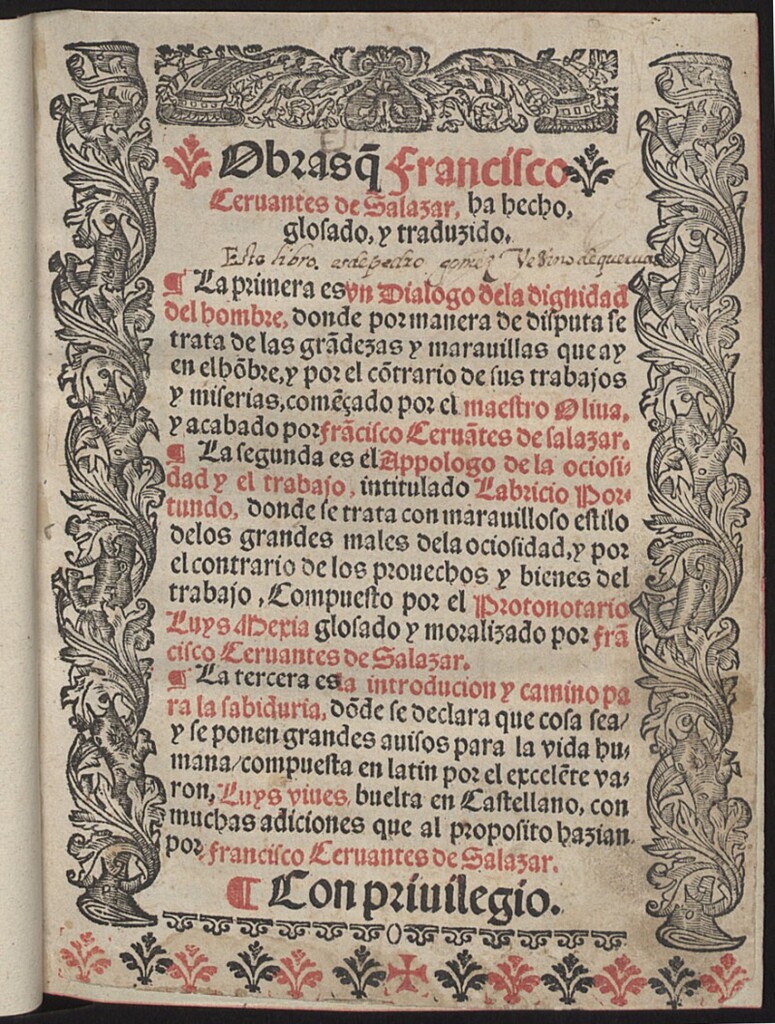 Obras q̃ Francisco
Ceruantes de Salazar, ha hecho,
glosado, y traduzido.
Este libro es de pedro gomez Vezino de
¶ La primera es vn Dialogo dela dignidad
del hombre, donde por manera de disputa se
trata de las grãdezas y marauillas que ay
en el hõbre, y por el cõtrario de sus trabajos
y miserias, comẽçado por el maestro Oliua,
y acabado por frãcisco Ceruãtes de salazar.
¶ La segunda es el Appologo de la ociosi-
dad y el trabajo, intitulado Labricio Por-
tundo, donde se trata con marauilloso estilo
delos grandes males dela ociosidad, y por
el contrario de los prouechos y bienes del
trabajo, Compuesto por el Protonotario
Luys Mexia glosado y moralizado por frã
cisco Ceruantes de Salazar.
¶ La tercera es la introducion y camino pa
ra la sabiduria, dõde se declara que cosa sea/
y se ponen grandes auisos para la vida hu-
mana/compuesta en latin por el excelẽte va-
ron, Luys viues, buelta en Castellano, con
muchas adiciones que al proposito hazian
por francisco Ceruantes de Salazar.
¶ Con priuilegio.